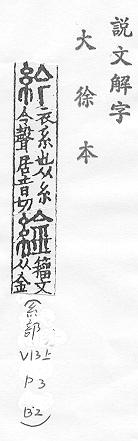 說文解字
大徐本
紟 衣系也从糸今聲居音切 䋮 籒文从金
(糸部 V13上 P3 B2)